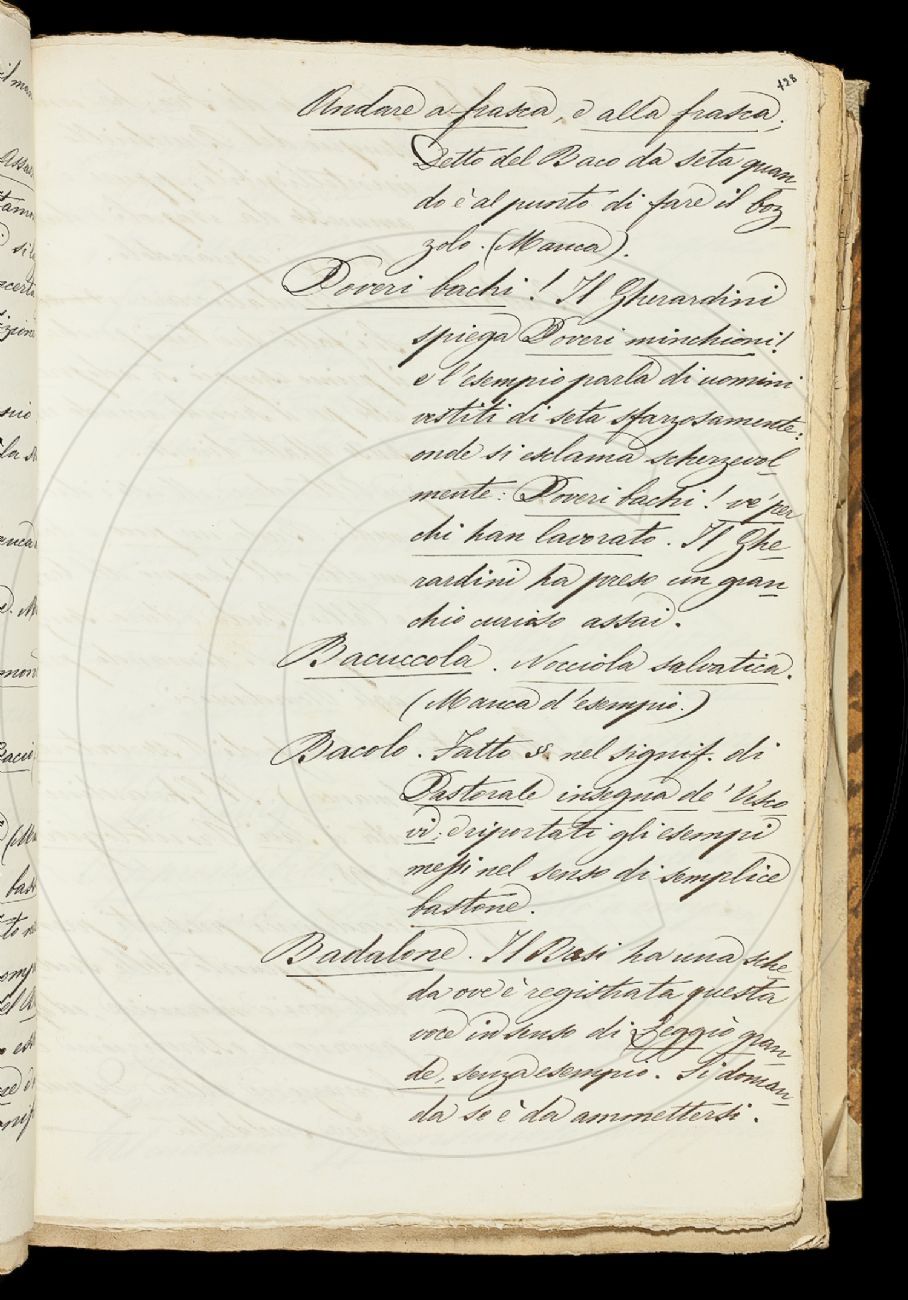 128
Andare a frasca, e alla frasca;
Detto del Baco da seta quan-
do è al punto di fare il boz-
zolo. (Manca).
Poveri bachi! Il Gherardini
spiega Poveri minchioni!
e l'esempio parla di uomini
vestiti di seta sfarzosamente:
onde si esclama scherzevol-
mente: Poveri bachi! ve' per
chi han lavorato. Il Ghe-
rardini ha preso un gran-
chio curioso assai.
Bacuccola. Nocciola salvatica.
(Manca d'esempio.)
Bacolo. Fatto §. nel signif. di
Pastorale insegna de' Vesco
vi: e riportati gli esempi
messi nel senso di semplice
bastone.
Badalone. Il Busi ha una sche
da ove è registrata questa
voce in senso di Leggio gran-
de, senza esempio. Si doman-
da se è da ammettersi.